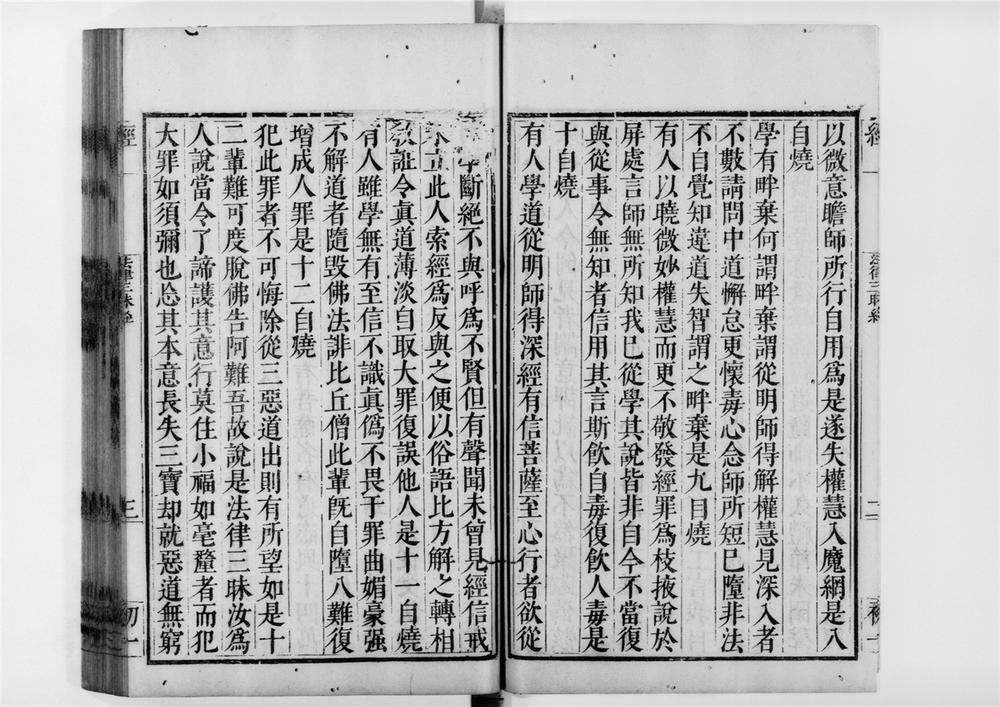 以微意瞻師所行自用爲是遂失權慧入魔網是八
自燒
學有畔棄何謂畔棄謂從明師得解權慧見深入者
不數請問中道懈怠更懷毒心念師所短已墮非法
不自覺知違道失智謂之畔棄是九自燒
有人以曉微妙權慧而更不敬發經罪爲枝掖說於
屏處言師無所知我已從學其說皆非自今不當復
與從事令無知者信用其言斯飲自毒復飲人毒是
十自燒
有人學道從明師得深經有信菩薩至心行者欲從
學斷絕不與呼爲不賢但有聲聞未曾見經信戒
不立此人索經爲反與之便以俗語比方解之轉相
教詆令眞道薄淡自取大罪復誤他人是十一自燒
有人雖學無有至信不識眞僞不畏于罪曲媚豪强
不解道者隨毀佛法誹比丘僧此輩旣自墮八難復
增成人罪是十二自燒
犯此罪者不可悔除從三惡道出則有所望如是十
二輩難可度脫佛告阿難吾故說是法律三昧汝爲
人說當令了諦護其意行莫住小福如毫釐者而犯
大罪如須彌也忩其本意長失三寶却就惡道無窮
經
法律三昧經
三
初一